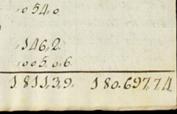 054.0
146.2.
005.06.
1811.39. 180.697.74